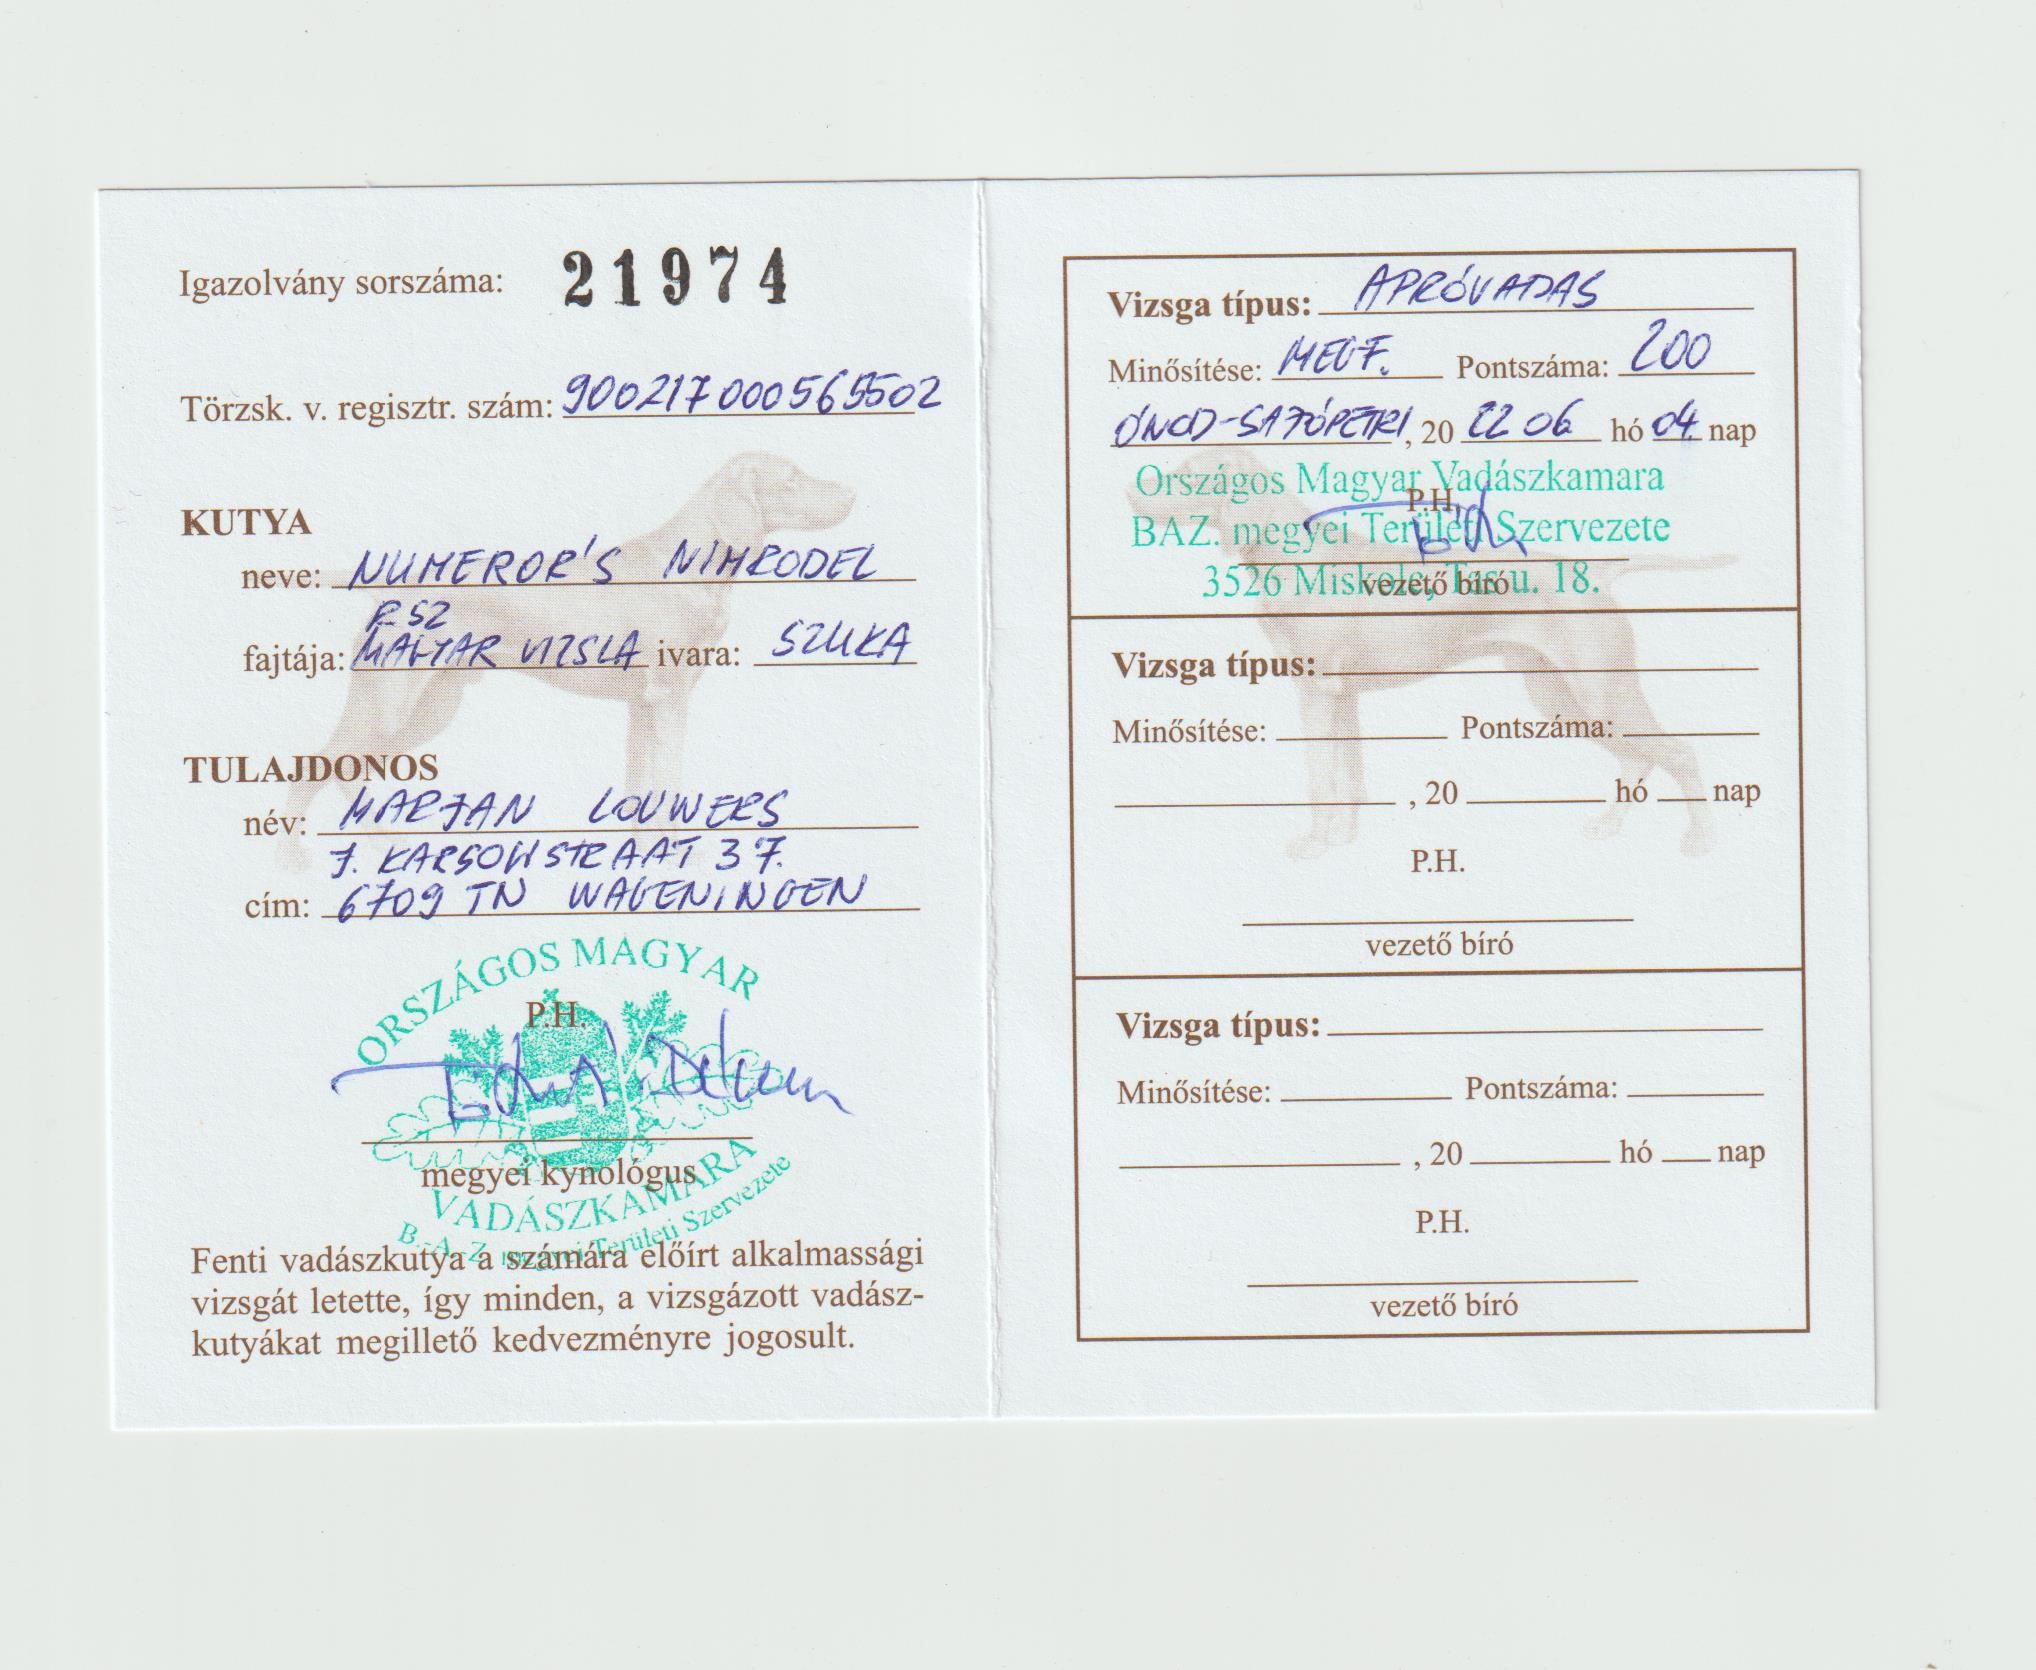 Igazolvány sorszáma: 21974
Törzsk. v. regisztr. szám: 900217000565502
KUTYA
neve: NUMEROR'S NIMRODEL
R SZ
fajtája: MAGYAR VIZSLA ivara: SZUKA
TULAJDONOS
név: MARJAN LOUWERS
J. KARSOWSTRAAT 37.
cím: 6709 TN WAGENINGEN
ORSZÁGOS MAGYAR
P.H.
megyei kynológus
VADÁSZKAMARA
B.-A.-Z. megyei Területi Szervezete
Fenti vadászkutya a számára előírt alkalmassági
vizsgát letette, így minden, a vizsgázott vadász-
kutyákat megillető kedvezményre jogosult.
Vizsga típus: APRÓVADAS
Minősítése: MEGF. Pontszáma: 200
ÓNOD-SAJÓPETRI, 20 22 06 hó 04. nap
Országos Magyar Vadászkamara
P.H.
BAZ. megyei Területi Szervezete
3526 Miskolc, Tas u. 18.
vezető bíró
Vizsga típus:
Minősítése: Pontszáma:
, 20 hó nap
P.H.
vezető bíró
Vizsga típus:
Minősítése: Pontszáma:
, 20 hó nap
P.H.
vezető bíró